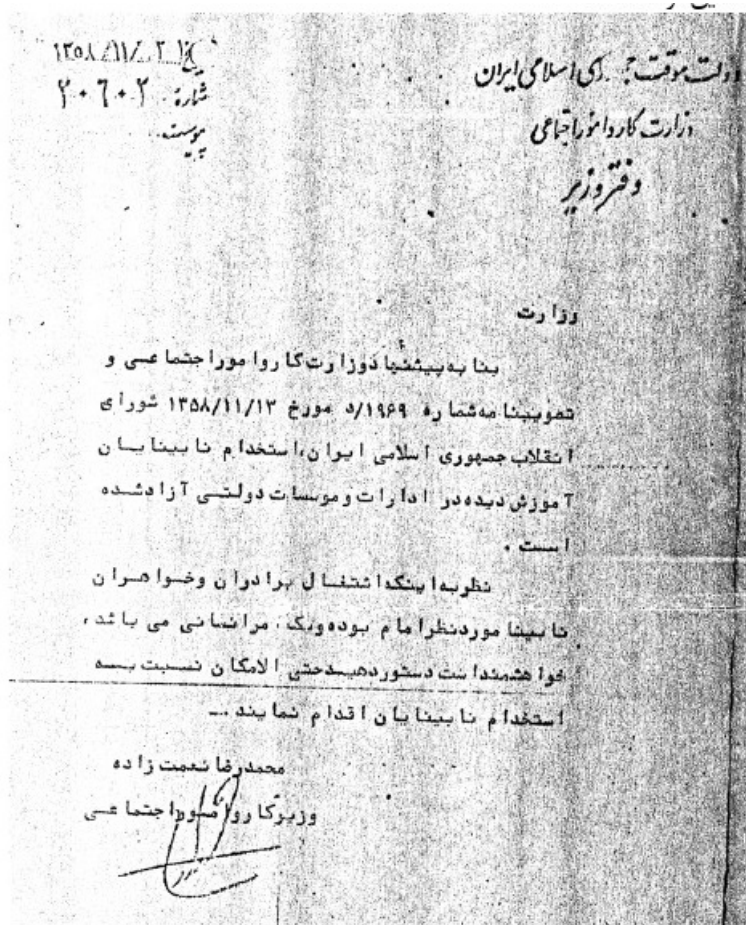 تاریخ ۱۳۵۸/۱۱/۲۱
شماره ۲۰۶۰۲
پیوست
دولت موقت ج ری اسلامی ایران
وزارت کار و امور اجتماعی
دفتر وزیر
وزارت
بنا به پیشنهاد وزارت کار و امور اجتماعی و
تصویبنامه شماره ۱۹۶۹/د مورخ ۱۳۵۸/۱۱/۱۳ شورای
انقلاب جمهوری اسلامی ایران، استخدام نابینایان
آموزش دیده در ادارات و موسسات دولتی آزاد شده
است .
نظر به اینکه اشتغال برادران و خواهران
نابینا مورد نظر امام بوده و یک مر انسانی می باشد،
خواهشمند است دستور دهید حتی الامکان نسبت به
استخدام نابینایان اقدام نمایند ..
محمدرضا نعمت زاده
وزیر کار و امور اجتماعی